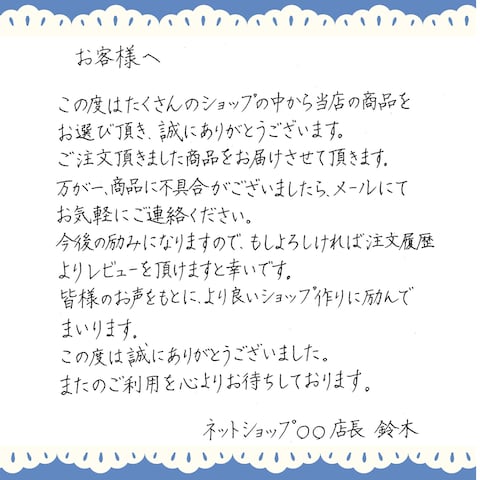 お客様へ
この度はたくさんのショップの中から当店の商品を
お選び頂き、誠にありがとうございます。
ご注文頂きました商品をお届けさせて頂きます。
万が一、商品に不具合がございましたら、メールにて
お気軽にご連絡ください。
今後の励みになりますので、もしよろしければ注文履歴
よりレビューを頂けますと幸いです。
皆様のお声をもとに、より良いショップ作りに励んで
まいります。
この度は誠にありがとうございました。
またのご利用を心よりお待ちしております。
ネットショップ○○店長 鈴木